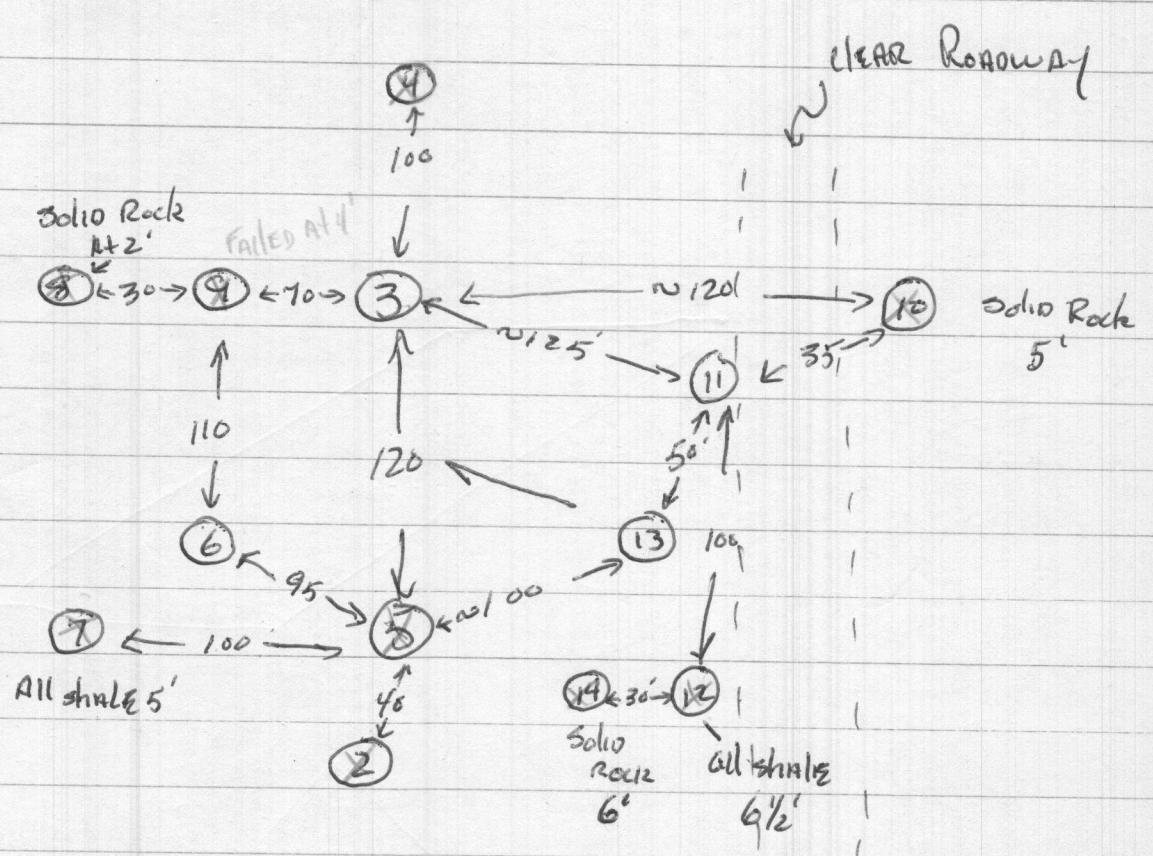 CLEAR ROADWAY
4
100
Solid Rock
At 2'
FAILED At 4'
8 30 9 70 3 ~120' 10 Solid Rock
5'
~125' 35'
11
110
120 50'
6 13 100
95 ~100
7 100 5
All shale 5' 40 14 30' 12
2 Solid
Rock All shale
6' 6 1/2'